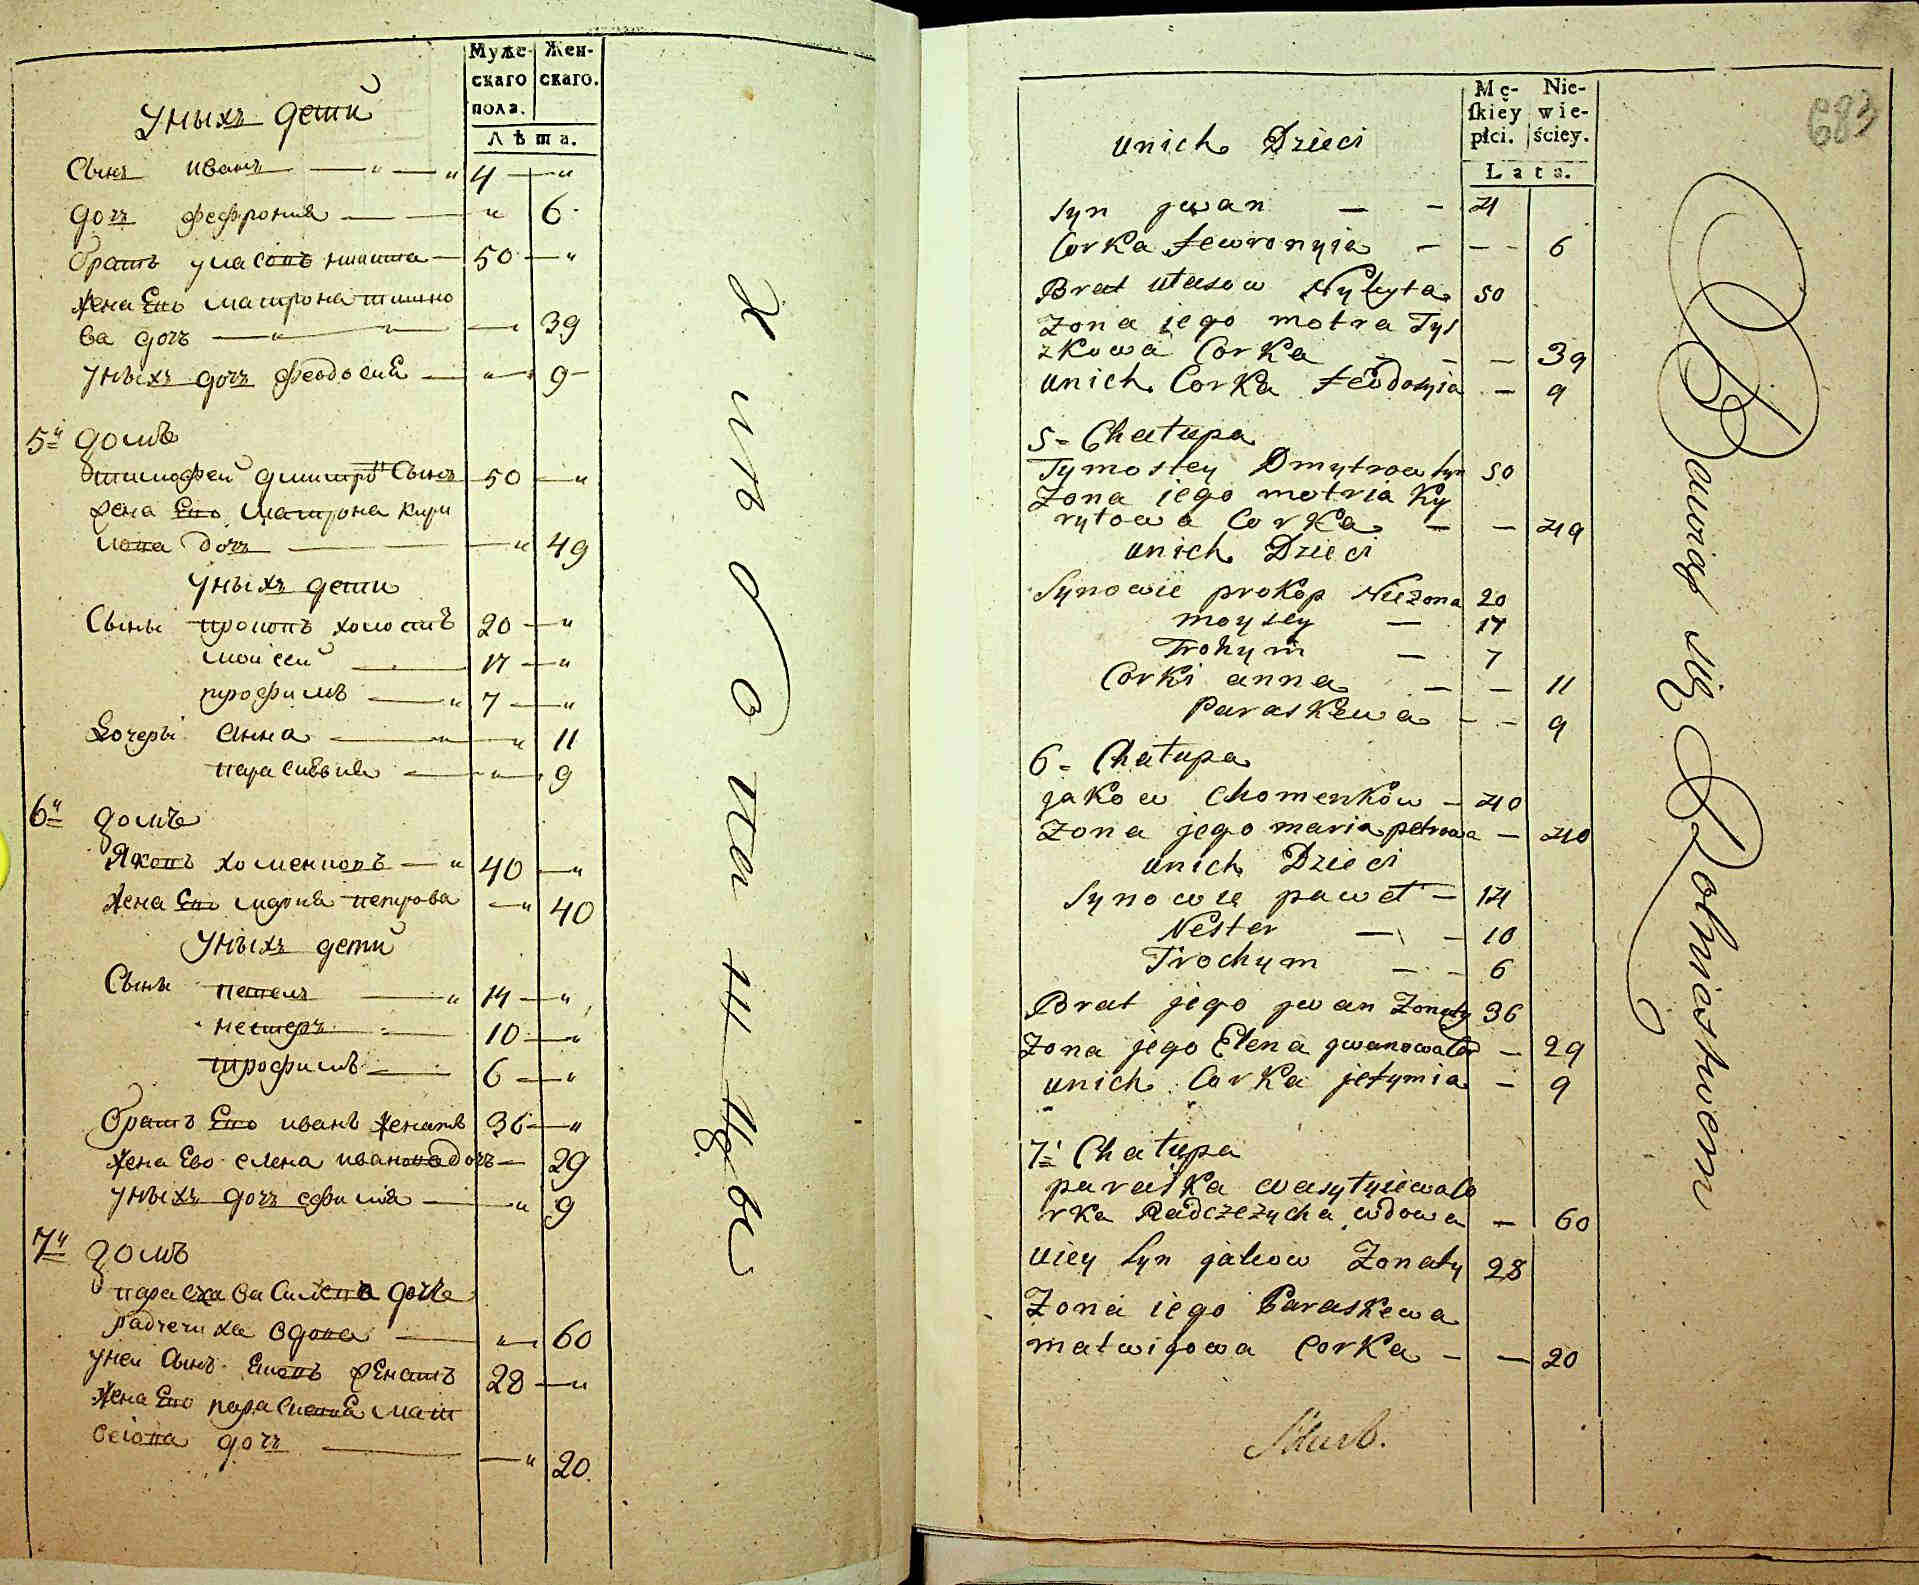 Муже-
скаго
пола.
Жен-
скаго.
Лѣта.
Уныхъ дети
Сынъ иванъ 4
дочъ фефрония 6
братъ уласовъ никита 50
жена Ево матрона тишко
ва дочъ 39
Уныхъ дочъ феодосиЕ 9
5й домъ
тимофей димитръ Сынъ 50
жена Ево матрона кири
лова дочъ 49
Уныхъ дети
Сыны прокопъ холостъ 20
моисей 17
трофимъ 7
Дочери анна 11
парасковия 9
6й домъ
Яковъ хоменковъ 40
жена Ево мария петрова 40
Уныхъ дети
Сыны павелъ 14
нестеръ 10
трофимъ 6
братъ Ево иванъ женатъ 36
жена Ево елена иванова дочъ 29
Уныхъ дочъ ефимия 9
7й домъ
параска Василева дочка
радчечиха вдова 60
Уней Сынъ женатъ 28
жена Ево матъ
веіова дочъ 20.
683
Mę-
skiey
płci.
Nie-
wie-
ściey.
Lata.
unich Dzieci
Syn jwan 4
Corka fewronyia 6
Brat ułasow Nykyta 50
Zona jego motra Tys
zkowa Corka 39
unich Corka feodosyia 9
5 Chałupa
Tymosfey Dmytrow Syn 50
Zona iego motria Ky
ryłowa Corka 49
unich Dzieci
Synowie prokop Niezona 20
moysey 17
Trohym 7
Corki anna 11
Paraskewa 9
6 Chałupa
jakow Chomenkow 40
Zona jego maria petrowa 40
unich Dzieci
Synowie paweł 14
Nester 10
Trochym 6
Brat jego jwan Zonaty 36
Zona jego Elena jwanowa Cor 29
unich Corka jefymia 9
7 Chałupa
paraska wasylyiewa Co
rka Radczeżycha wdowa 60
uiey Syn jakow Zonaty 28
Zona iego Paraskewa
matwijowa Corka 20
Bawiąs się Rolniastwem